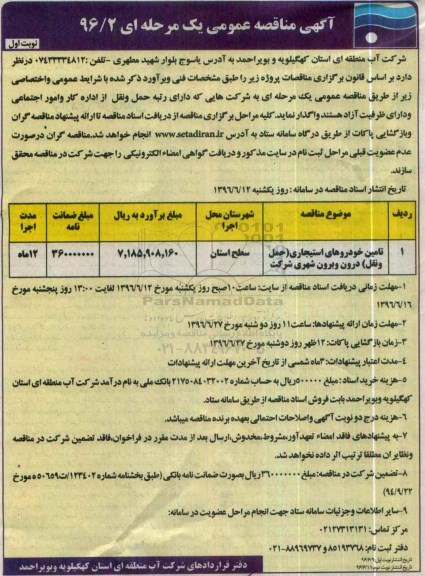 آگهی مناقصه عمومی یک مرحله ای ۹۶/۲
نوبت اول
شرکت آب منطقه ای استان کهگیلویه و بویراحمد به آدرس یاسوج بلوار شهید مطهری -تلفن: ۰۷۴۳۳۳۳۴۸۱۲ درنظر
دارد بر اساس قانون برگزاری مناقصات پروژه زیر را طبق مشخصات فنی وبرآورد ذکر شده با شرایط عمومی واختصاصی
زیر از طریق مناقصه عمومی یک مرحله ای به شرکت هایی که دارای رتبه حمل ونقل از اداره کار وامور اجتماعی
ودارای ظرفیت آزاد هستند واگذار نماید.کلیه مراحل برگزاری مناقصه از دریافت اسناد مناقصه تا ارائه پیشنهاد مناقصه گران
وبازگشایی پاکات از طریق درگاه سامانه ستاد به آدرس www.setadiran.ir انجام خواهد شد.مناقصه گران درصورت
عدم عضویت قبلی مراحل ثبت نام در سایت مذکور و دریافت گواهی امضاء الکترونیکی را جهت شرکت در مناقصه محقق
سازند.
تاریخ انتشار اسناد مناقصه در سامانه : روز یکشنبه ۱۳۹۶/۶/۱۲
ردیف موضوع مناقصه شهرستان محل اجرا مبلغ برآورد به ریال مبلغ ضمانت نامه مدت اجرا
۱ تامین خودروهای استیجاری(حمل ونقل) درون وبرون شهری شرکت سطح استان ۷,۱۸۵,۹۰۸,۱۶۰ ۳۶۰۰۰۰۰۰۰ ۱۲ماه
۱-مهلت زمانی دریافت اسناد مناقصه از سایت: ساعت۱۰صبح روز یکشنبه مورخ ۱۳۹۶/۶/۱۲ لغایت ۱۳:۰۰ روز پنجشنبه مورخ
۱۳۹۶/۶/۱۶
۲-مهلت زمان ارائه پیشنهادها: ساعت۱۱ روز دو شنبه مورخ ۱۳۹۶/۶/۲۷
۳-زمان بازگشایی پاکات: ۱۲ظهر روز دوشنبه مورخ ۱۳۹۶/۶/۲۷
۴-مدت اعتبار پیشنهادات: ۳ماه شمسی از تاریخ آخرین مهلت ارائه پیشنهادات
۵-هزینه خرید اسناد : مبلغ ۵۰۰۰۰۰ریال به حساب شماره ۲۱۷۵۰۸۴۰۲۲۰۰۲ بانک ملی به نام درآمد شرکت آب منطقه ای استان
کهگیلویه وبویراحمد بابت فروش اسناد مناقصه از طریق سامانه ستاد.
۶-هزینه درج دو نوبت آگهی واصلاحات احتمالی بعهده برنده مناقصه میباشد.
۷-به پیشنهادهای فاقد امضاء تعهدآور،مشروط،مخدوش،ارسال بعد از مدت مقرر در فراخوان،فاقد تضمین شرکت در مناقصه
ونظایر آن مطلقا ترتیب اثر داده نخواهد شد.
۸-تضمین شرکت در مناقصه: مبلغ ۳۶۰۰۰۰۰۰۰ریال بصورت ضمانت نامه بانکی (طبق بخشنامه شماره ۱۲۳۴۰۲/ت۵۰۶۵۹ه مورخ
۹۴/۹/۲۲)
۹-سایر اطلاعات وجزئیات سامانه ستاد جهت انجام مراحل عضویت در سامانه:
مرکز تماس: ۰۲۱۲۷۳۱۳۱۳۱
دفتر ثبت نام: ۸۵۱۹۳۷۶۸ و ۸۸۹۶۹۷۳۷-۰۲۱
تاریخ انتشار نوبت اول: ۹۶/۶/۹
تاریخ انتشار نوبت دوم: ۹۶/۶/۱۱
دفتر قراردادهای شرکت آب منطقه ای استان کهگیلویه وبویراحمد
ParsNamadData
۰۲۱-۸۸۳۴۹۶۷۰-۵